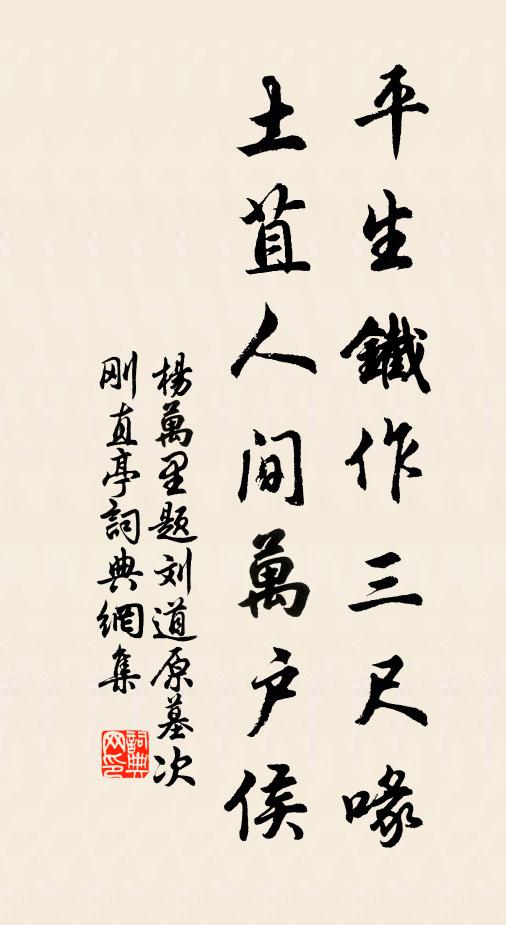 平生鐵作三尺喙
土苴人間萬户侯
楊萬里題刘道原墓次
剛直亭詞典網集
詞典网印